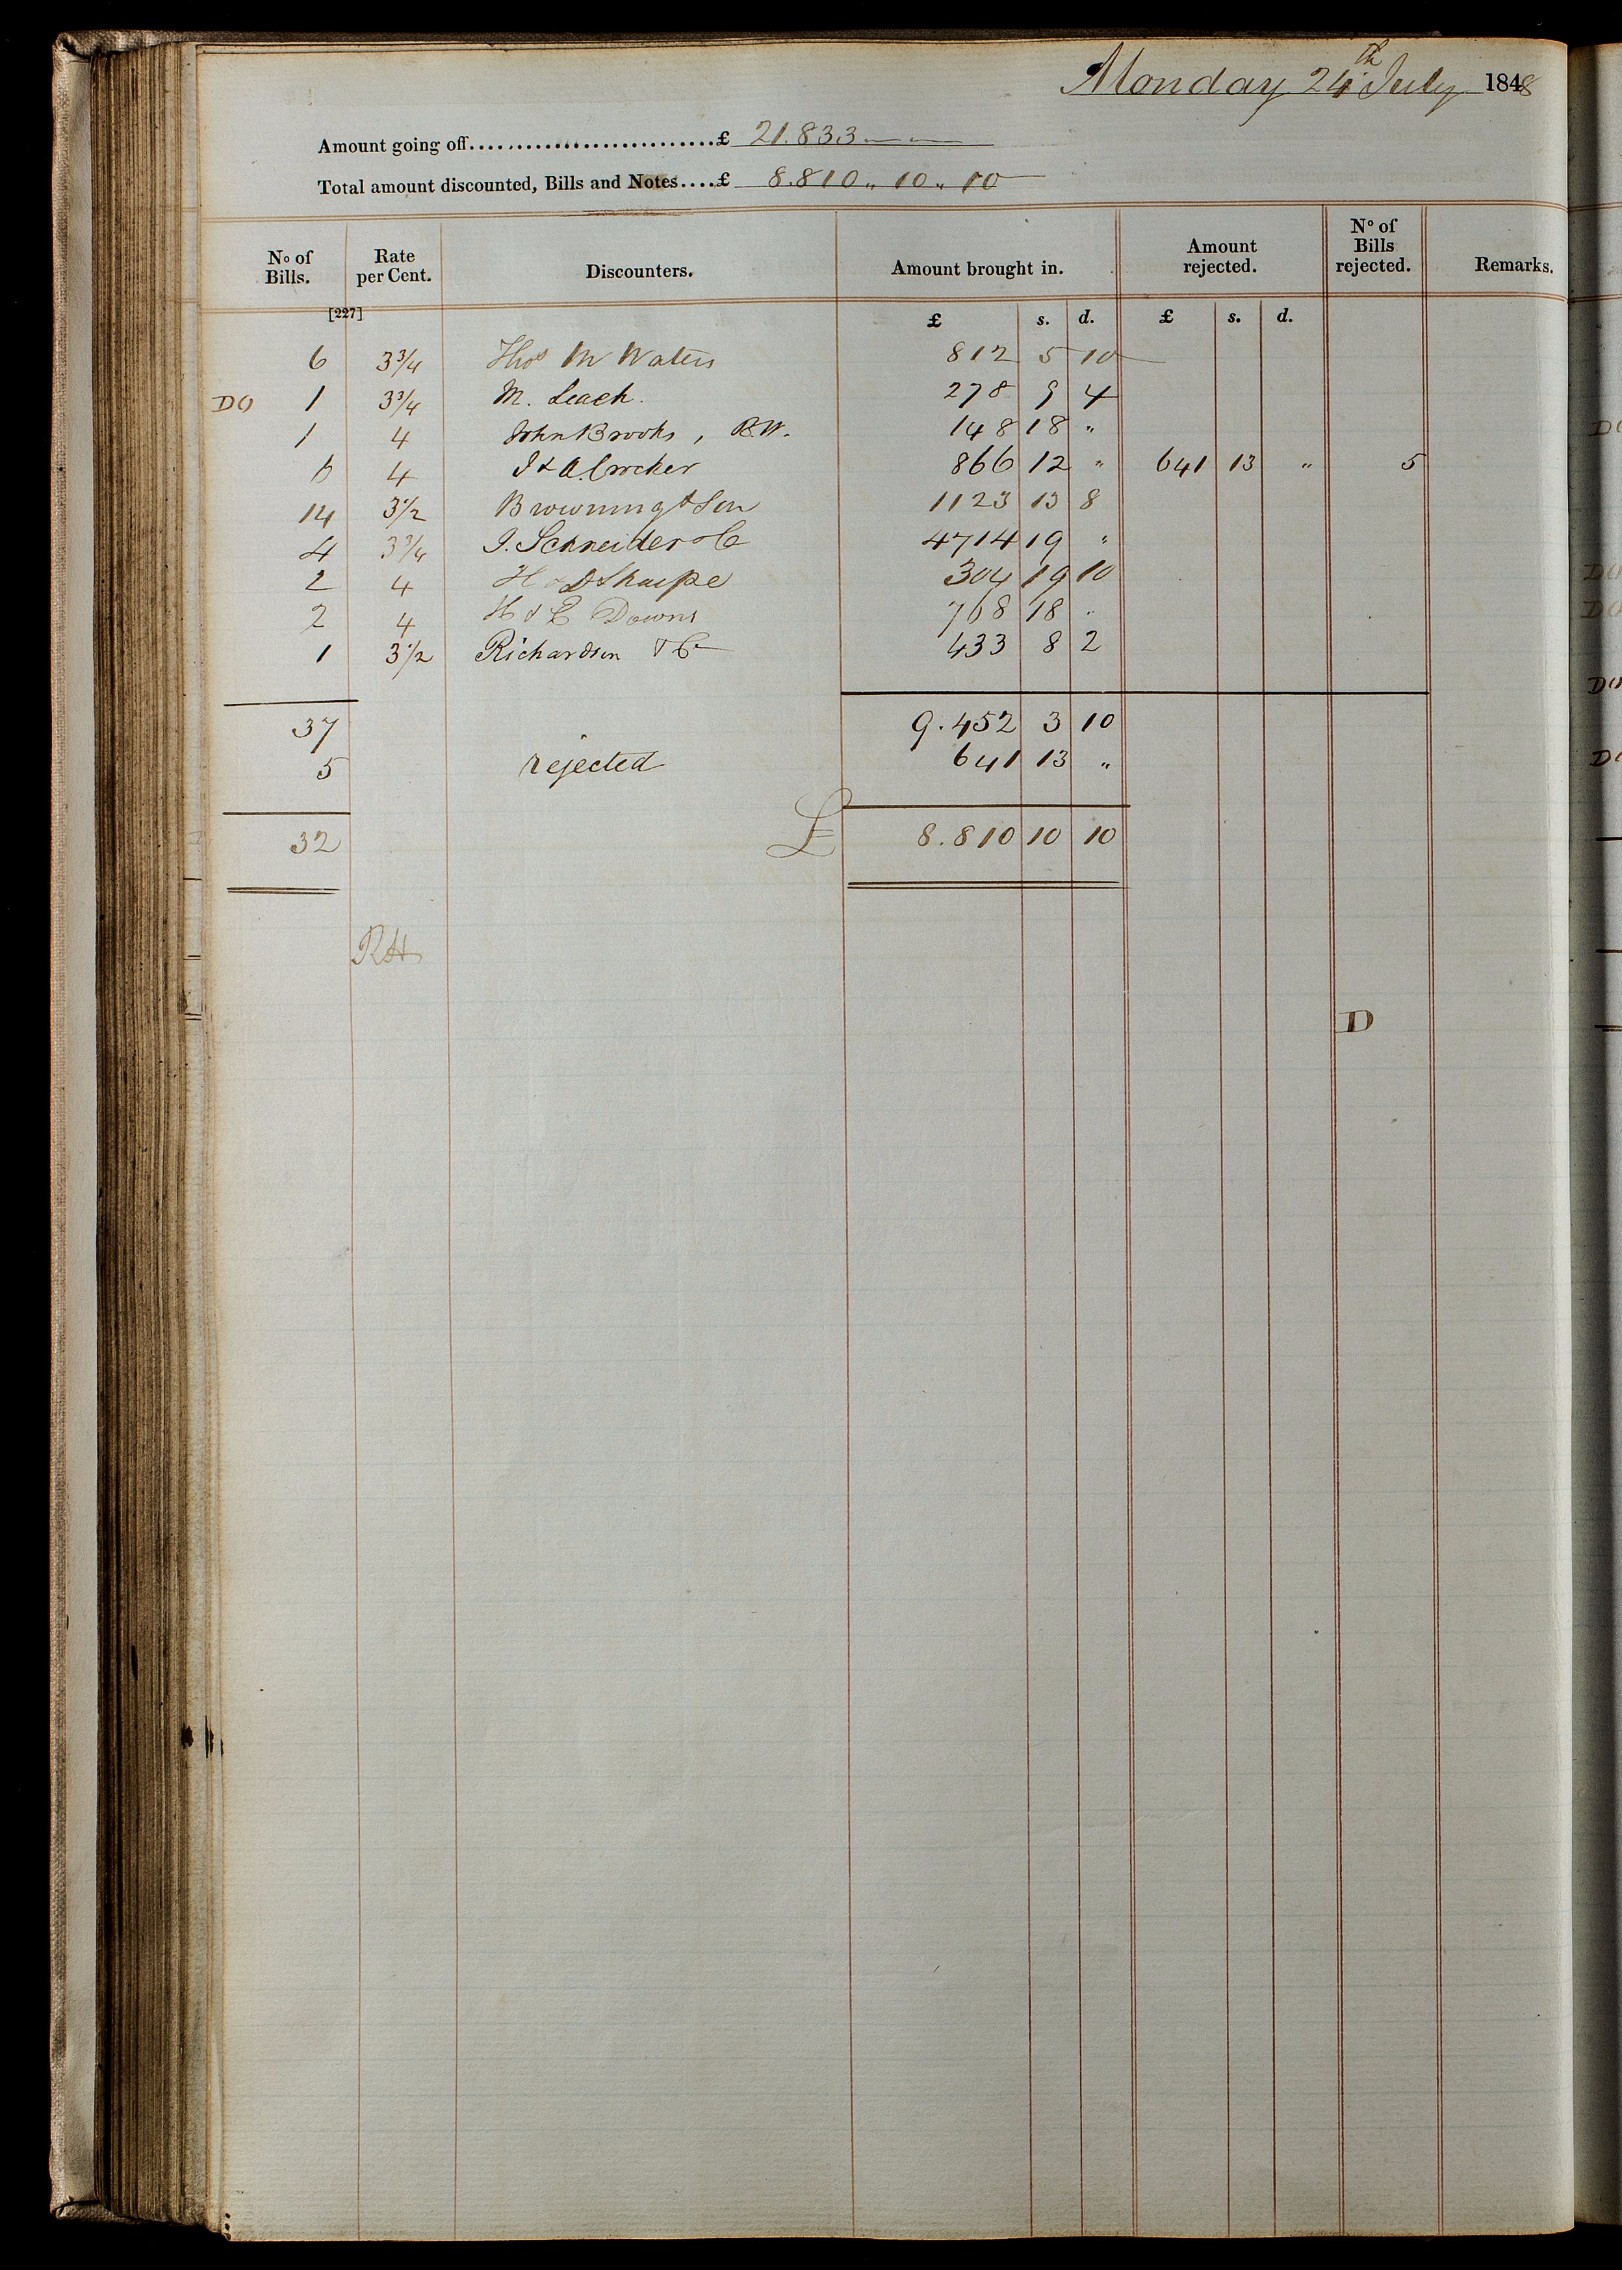 Monday 24th July 1848
Amount going off...........................£ 21.833
Total amount discounted, Bills and Notes....£ 8.810 " 10 " 10
No of Bills. Rate per Cent. Discounters. Amount brought in. Amount rejected. No of Bills rejected. Remarks.
[227] £ s. d. £ s. d.
6 3 3/4 Thos M Waters 812 5 10
DO 1 3 3/4 M. Leach. 278 9 4
1 4 John Brooks, B.W. 148 18 "
6 4 J & A. Crocker 866 12 " 641 13 " 5
14 3 1/2 Browning & Son 1123 13 8
4 3 3/4 J. Schneider & Co 4714 19 "
2 4 H & D Sharpe 304 19 10
2 4 H & E Downs 768 18 "
1 3 1/2 Richardson & Co 433 8 2
37 9.452 3 10
5 rejected 641 13 "
32 £ 8.810 10 10
RH
D